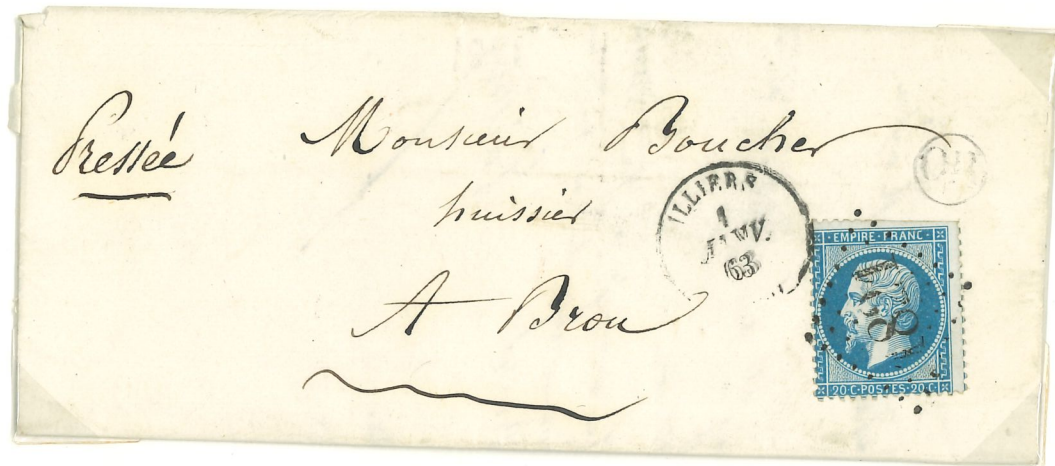 Pressée
Monsieur Boucher
OR
huissier
ILLIERS
1
JANV.
63
A Brou
EMPIRE · FRANC ·
20 C · POSTES · 20 C